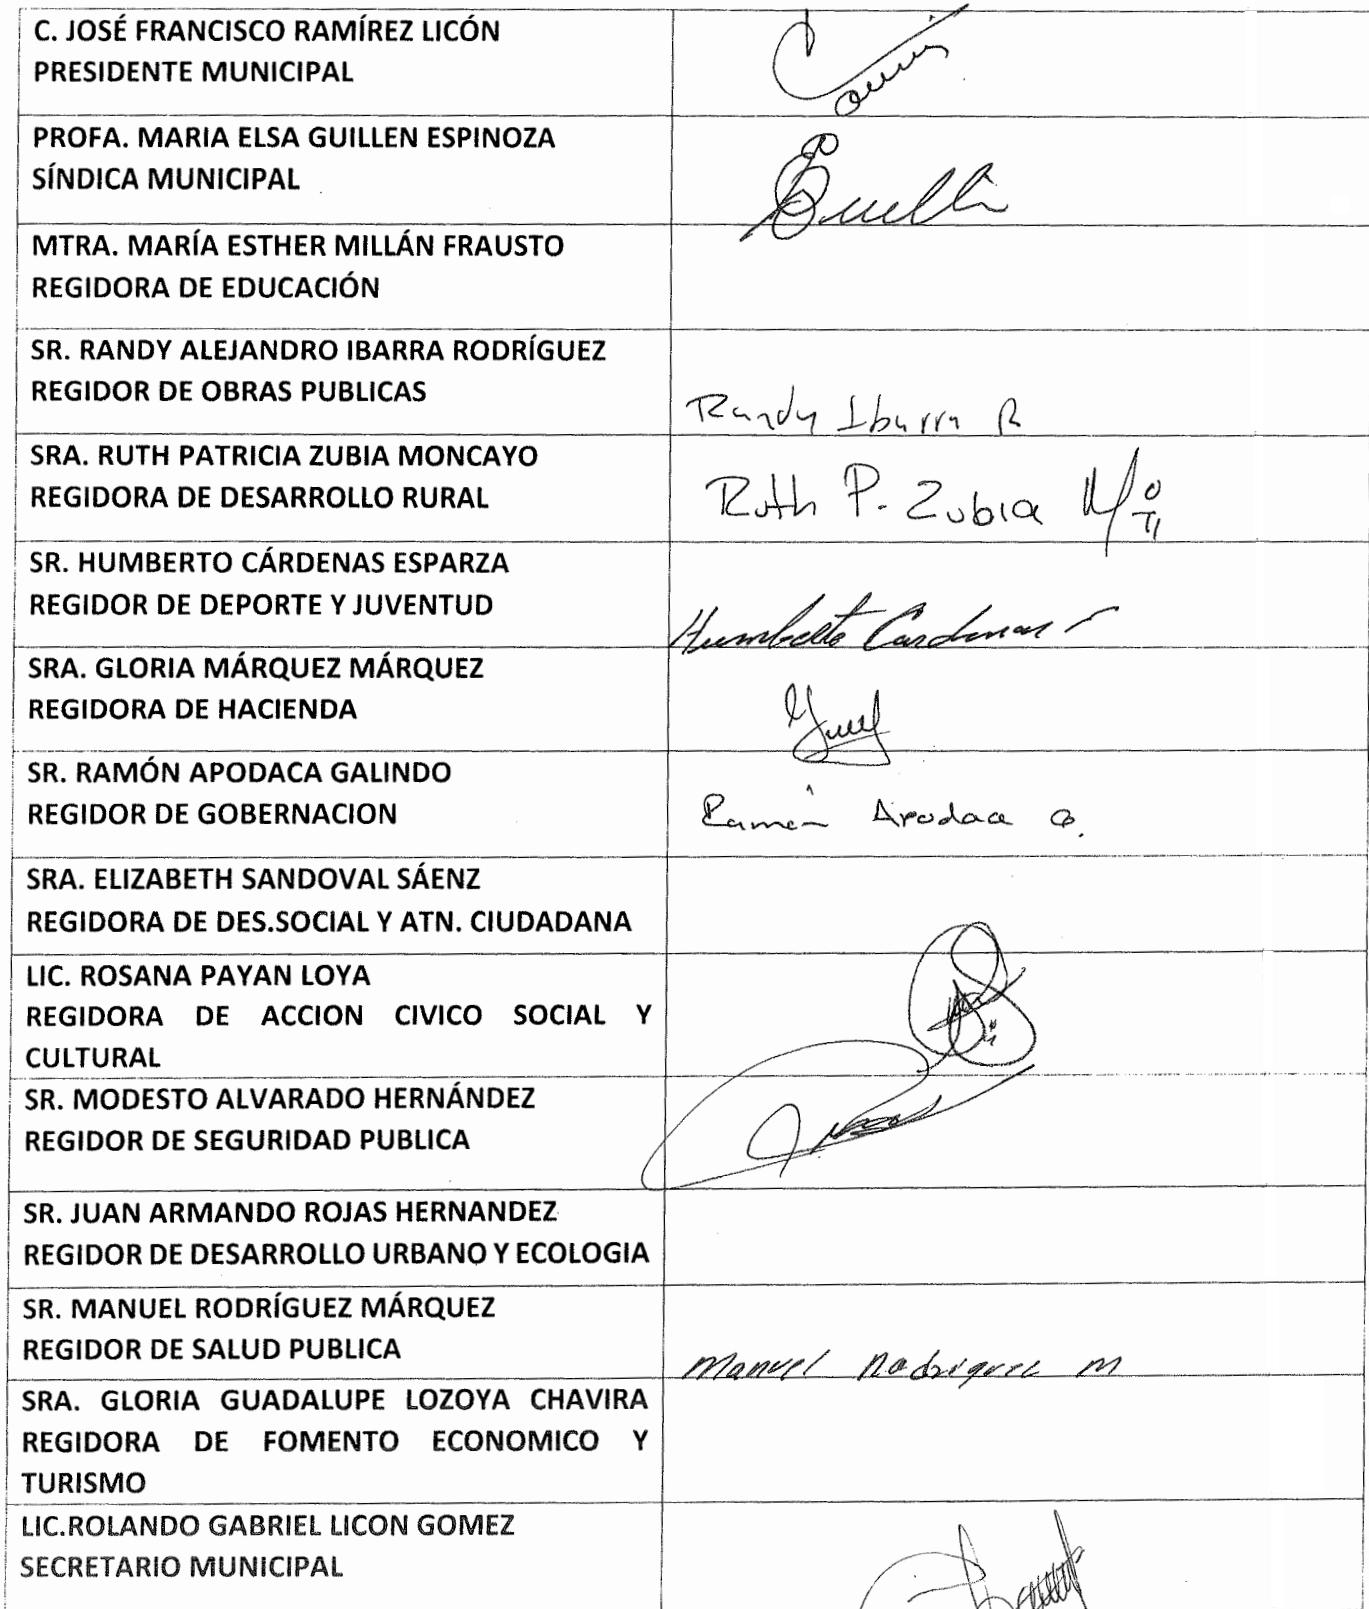 C. JOSÉ FRANCISCO RAMÍREZ LICÓN
PRESIDENTE MUNICIPAL
PROFA. MARIA ELSA GUILLEN ESPINOZA
SÍNDICA MUNICIPAL
MTRA. MARÍA ESTHER MILLÁN FRAUSTO
REGIDORA DE EDUCACIÓN
SR. RANDY ALEJANDRO IBARRA RODRÍGUEZ
REGIDOR DE OBRAS PUBLICAS
Randy Ibarra R
SRA. RUTH PATRICIA ZUBIA MONCAYO
REGIDORA DE DESARROLLO RURAL
Ruth P. Zubia
SR. HUMBERTO CÁRDENAS ESPARZA
REGIDOR DE DEPORTE Y JUVENTUD
Humberto Cardenas
SRA. GLORIA MÁRQUEZ MÁRQUEZ
REGIDORA DE HACIENDA
SR. RAMÓN APODACA GALINDO
REGIDOR DE GOBERNACION
Ramón Apodaca G.
SRA. ELIZABETH SANDOVAL SÁENZ
REGIDORA DE DES.SOCIAL Y ATN. CIUDADANA
LIC. ROSANA PAYAN LOYA
REGIDORA DE ACCION CIVICO SOCIAL Y
CULTURAL
SR. MODESTO ALVARADO HERNÁNDEZ
REGIDOR DE SEGURIDAD PUBLICA
SR. JUAN ARMANDO ROJAS HERNANDEZ
REGIDOR DE DESARROLLO URBANO Y ECOLOGIA
SR. MANUEL RODRÍGUEZ MÁRQUEZ
REGIDOR DE SALUD PUBLICA
Manuel Rodriguez M
SRA. GLORIA GUADALUPE LOZOYA CHAVIRA
REGIDORA DE FOMENTO ECONOMICO Y
TURISMO
LIC.ROLANDO GABRIEL LICON GOMEZ
SECRETARIO MUNICIPAL